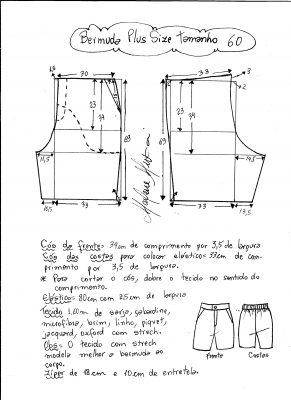 Bermuda Plus Size tamanho 60
30
33
3
2
23
34
23
34
69
69
11,5
14,5
10,5
33
33
13,5
Cós da frente: 34cm de comprimento por 3,5 de largura
Cós das costas para colocar elástico = 33cm de com-
primento por 3,5 de largura.
* Para cortar o cós, dobre o tecido no sentido do
comprimento.
elástico = 80cm com 2,5cm de largura
tecido 1,20m de sarja, gabardine,
microfibra, brim, linho, piquet,
jacquard, oxford com strech.
Obs = O tecido com strech
modela melhor a bermuda ao
corpo.
Zíper de 18cm e 10cm de entretela.
Frente
Costas